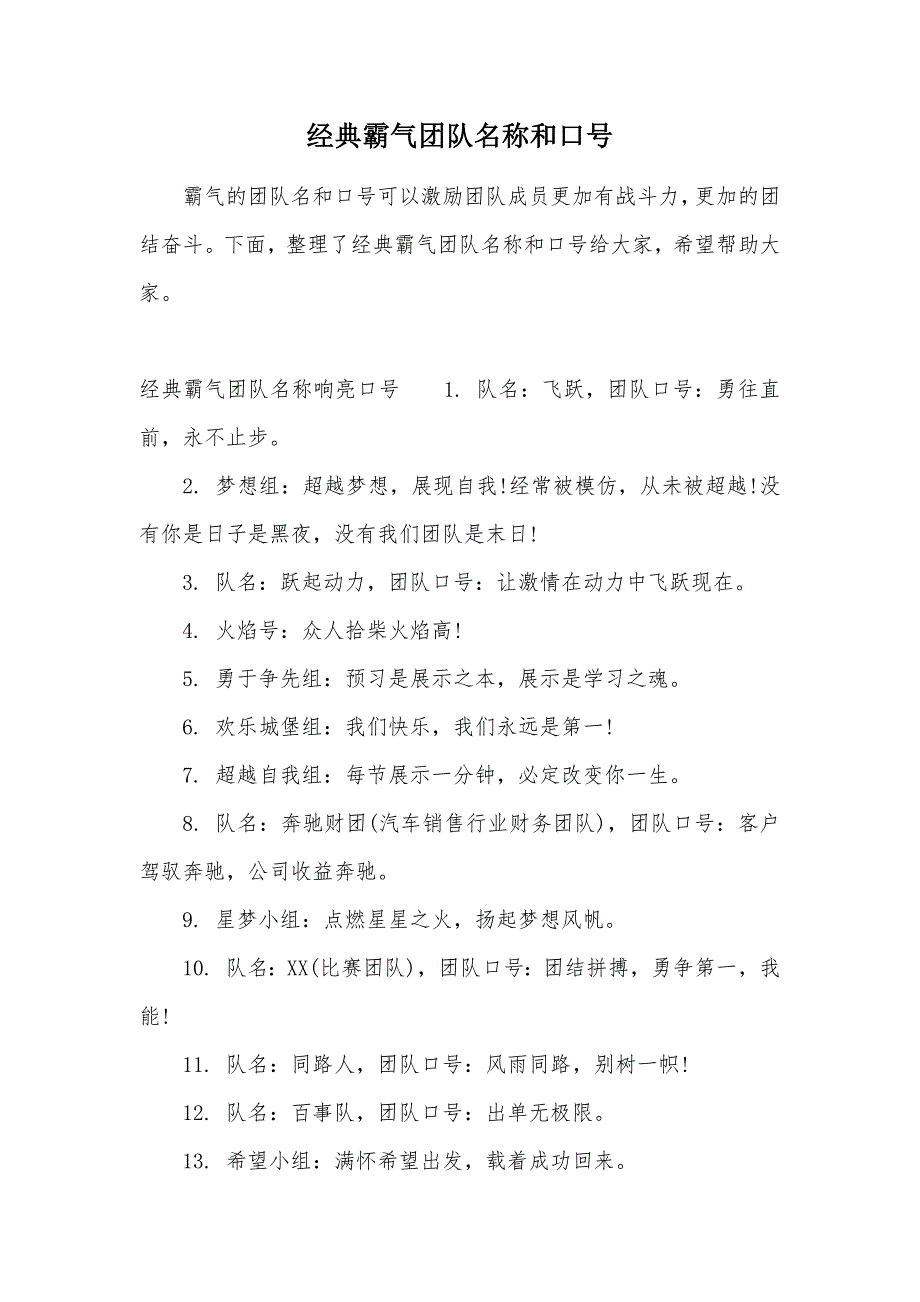 经典霸气团队名称和口号
霸气的团队名和口号可以激励团队成员更加有战斗力,更加的团
结奋斗。下面，整理了经典霸气团队名称和口号给大家，希望帮助大
家。
经典霸气团队名称响亮口号　　1. 队名：飞跃，团队口号：勇往直
前，永不止步。
2. 梦想组：超越梦想，展现自我!经常被模仿，从未被超越!没
有你是日子是黑夜，没有我们团队是末日!
3. 队名：跃起动力，团队口号：让激情在动力中飞跃现在。
4. 火焰号：众人拾柴火焰高!
5. 勇于争先组：预习是展示之本，展示是学习之魂。
6. 欢乐城堡组：我们快乐，我们永远是第一!
7. 超越自我组：每节展示一分钟，必定改变你一生。
8. 队名：奔驰财团(汽车销售行业财务团队)，团队口号：客户
驾驭奔驰，公司收益奔驰。
9. 星梦小组：点燃星星之火，扬起梦想风帆。
10. 队名：XX(比赛团队)，团队口号：团结拼搏，勇争第一，我
能!
11. 队名：同路人，团队口号：风雨同路，别树一帜!
12. 队名：百事队，团队口号：出单无极限。
13. 希望小组：满怀希望出发，载着成功回来。